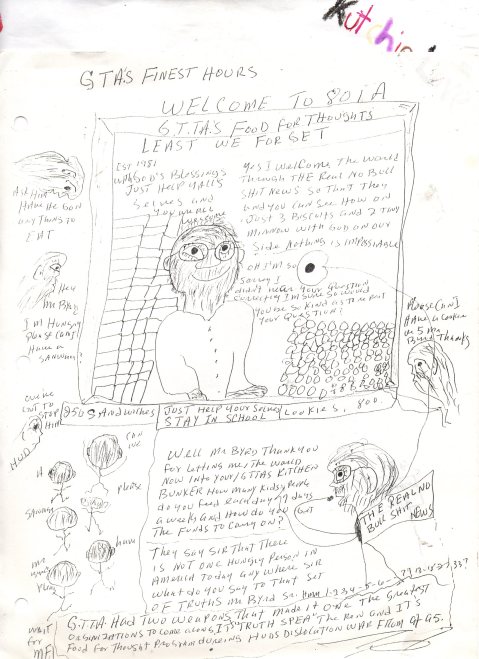 Kutchie
GTA'S FINEST HOURS
WELCOME TO 801A
G.T.TA'S FOOD FOR THOUGHTS
LEAST WE FORGET
EST 1981
With GOD'S Blessings
JUST HELP YALLS
Selves and
YOU ARE ALL
Welcome
Yes I Welcome The World
Through THE Real No Bull
SHIT NEWS SO THAT THEY
and you Can See How on
JUST 3 BISCUITS and 2 Tiny
Minnow WITH GOD ON OUR
Side Nothing is IMPOSSIABLE
OH I'M SO
Sorry I
didn't Hear Your Question
Currifly I'M Sure So Would
You Be So Kind AS TO Repeat
Your Question?
Ask Him
Have He GOT
Any Thing TO
EAT
Hey
Mr Byrd
I'M HUNGRY
Please Can I
Have a
SANDWICH
Please Can I
Have a Cookie
or 5 Mr
Byrd Thanks
We've
GOT TO
STOP
Him
HUD
250 $ And Wiches
JUST HELP YOUR Selves
STAY IN SCHOOL
Cookies, 800.
Can
We
please
Have
Mr
Byrd
WAIT
For
ME
Well Mr BYRD THANK YOU
For Letting Me, The World
Now INTO YOUR/GTTAS KITCHEN
BUNKER HOW MANY Kids/People
do you Feed Each day/7 days
a week, and How do You Get
The Funds To Carry on?
THE REAL NO
BULL SHIT NEWS
They Say Sir That There
is NOT one Hungry Person in
America Today Guy Where Sir
What do you Say To That Set
OF TRUTHS Mr Byrd Sr.
G.T.TA HAD TWO WEAPONS That made it One The Greatest
ORGANIZATIONS TO COME along, IT'S "TRUTH SPEA" The Ron and IT'S
Food For Thought Program dureing HUDS DISLOCATION WAR From G.S.